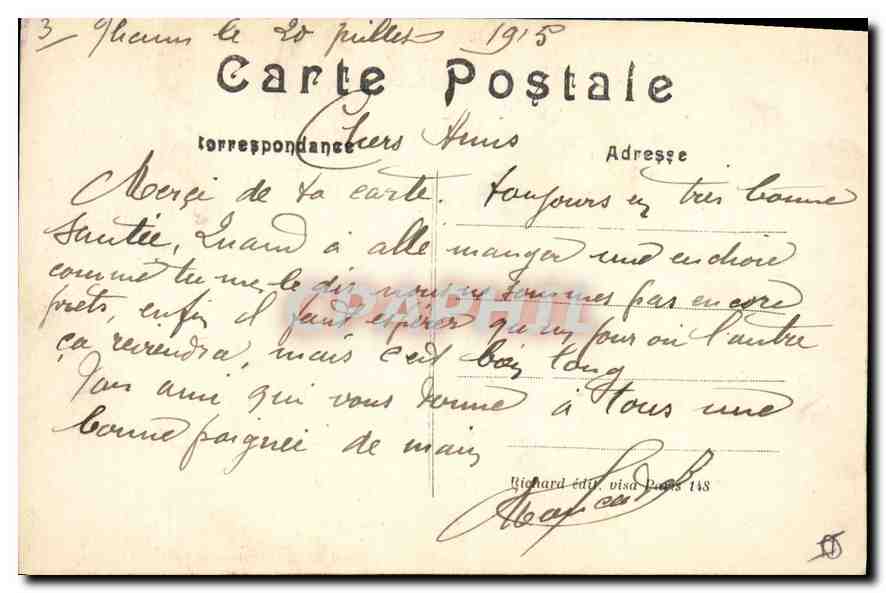 3 9heures le 20 juillet 1915
Carte Postale
Correspondance
Chers Amis
Adresse
Merçi de ta carte. toujours en très bonne
santée, Quand à allé manger une enchoie
comme tu me le dis nous ne sommes pas encore
prets, enfin il faut espérer qu'un jour ou l'autre
ça reviendra, mais c'est bien long
Ton ami qui vous donne à tous une
bonne poignée de main
Richard édit. visa Paris 148
CPAPHIL